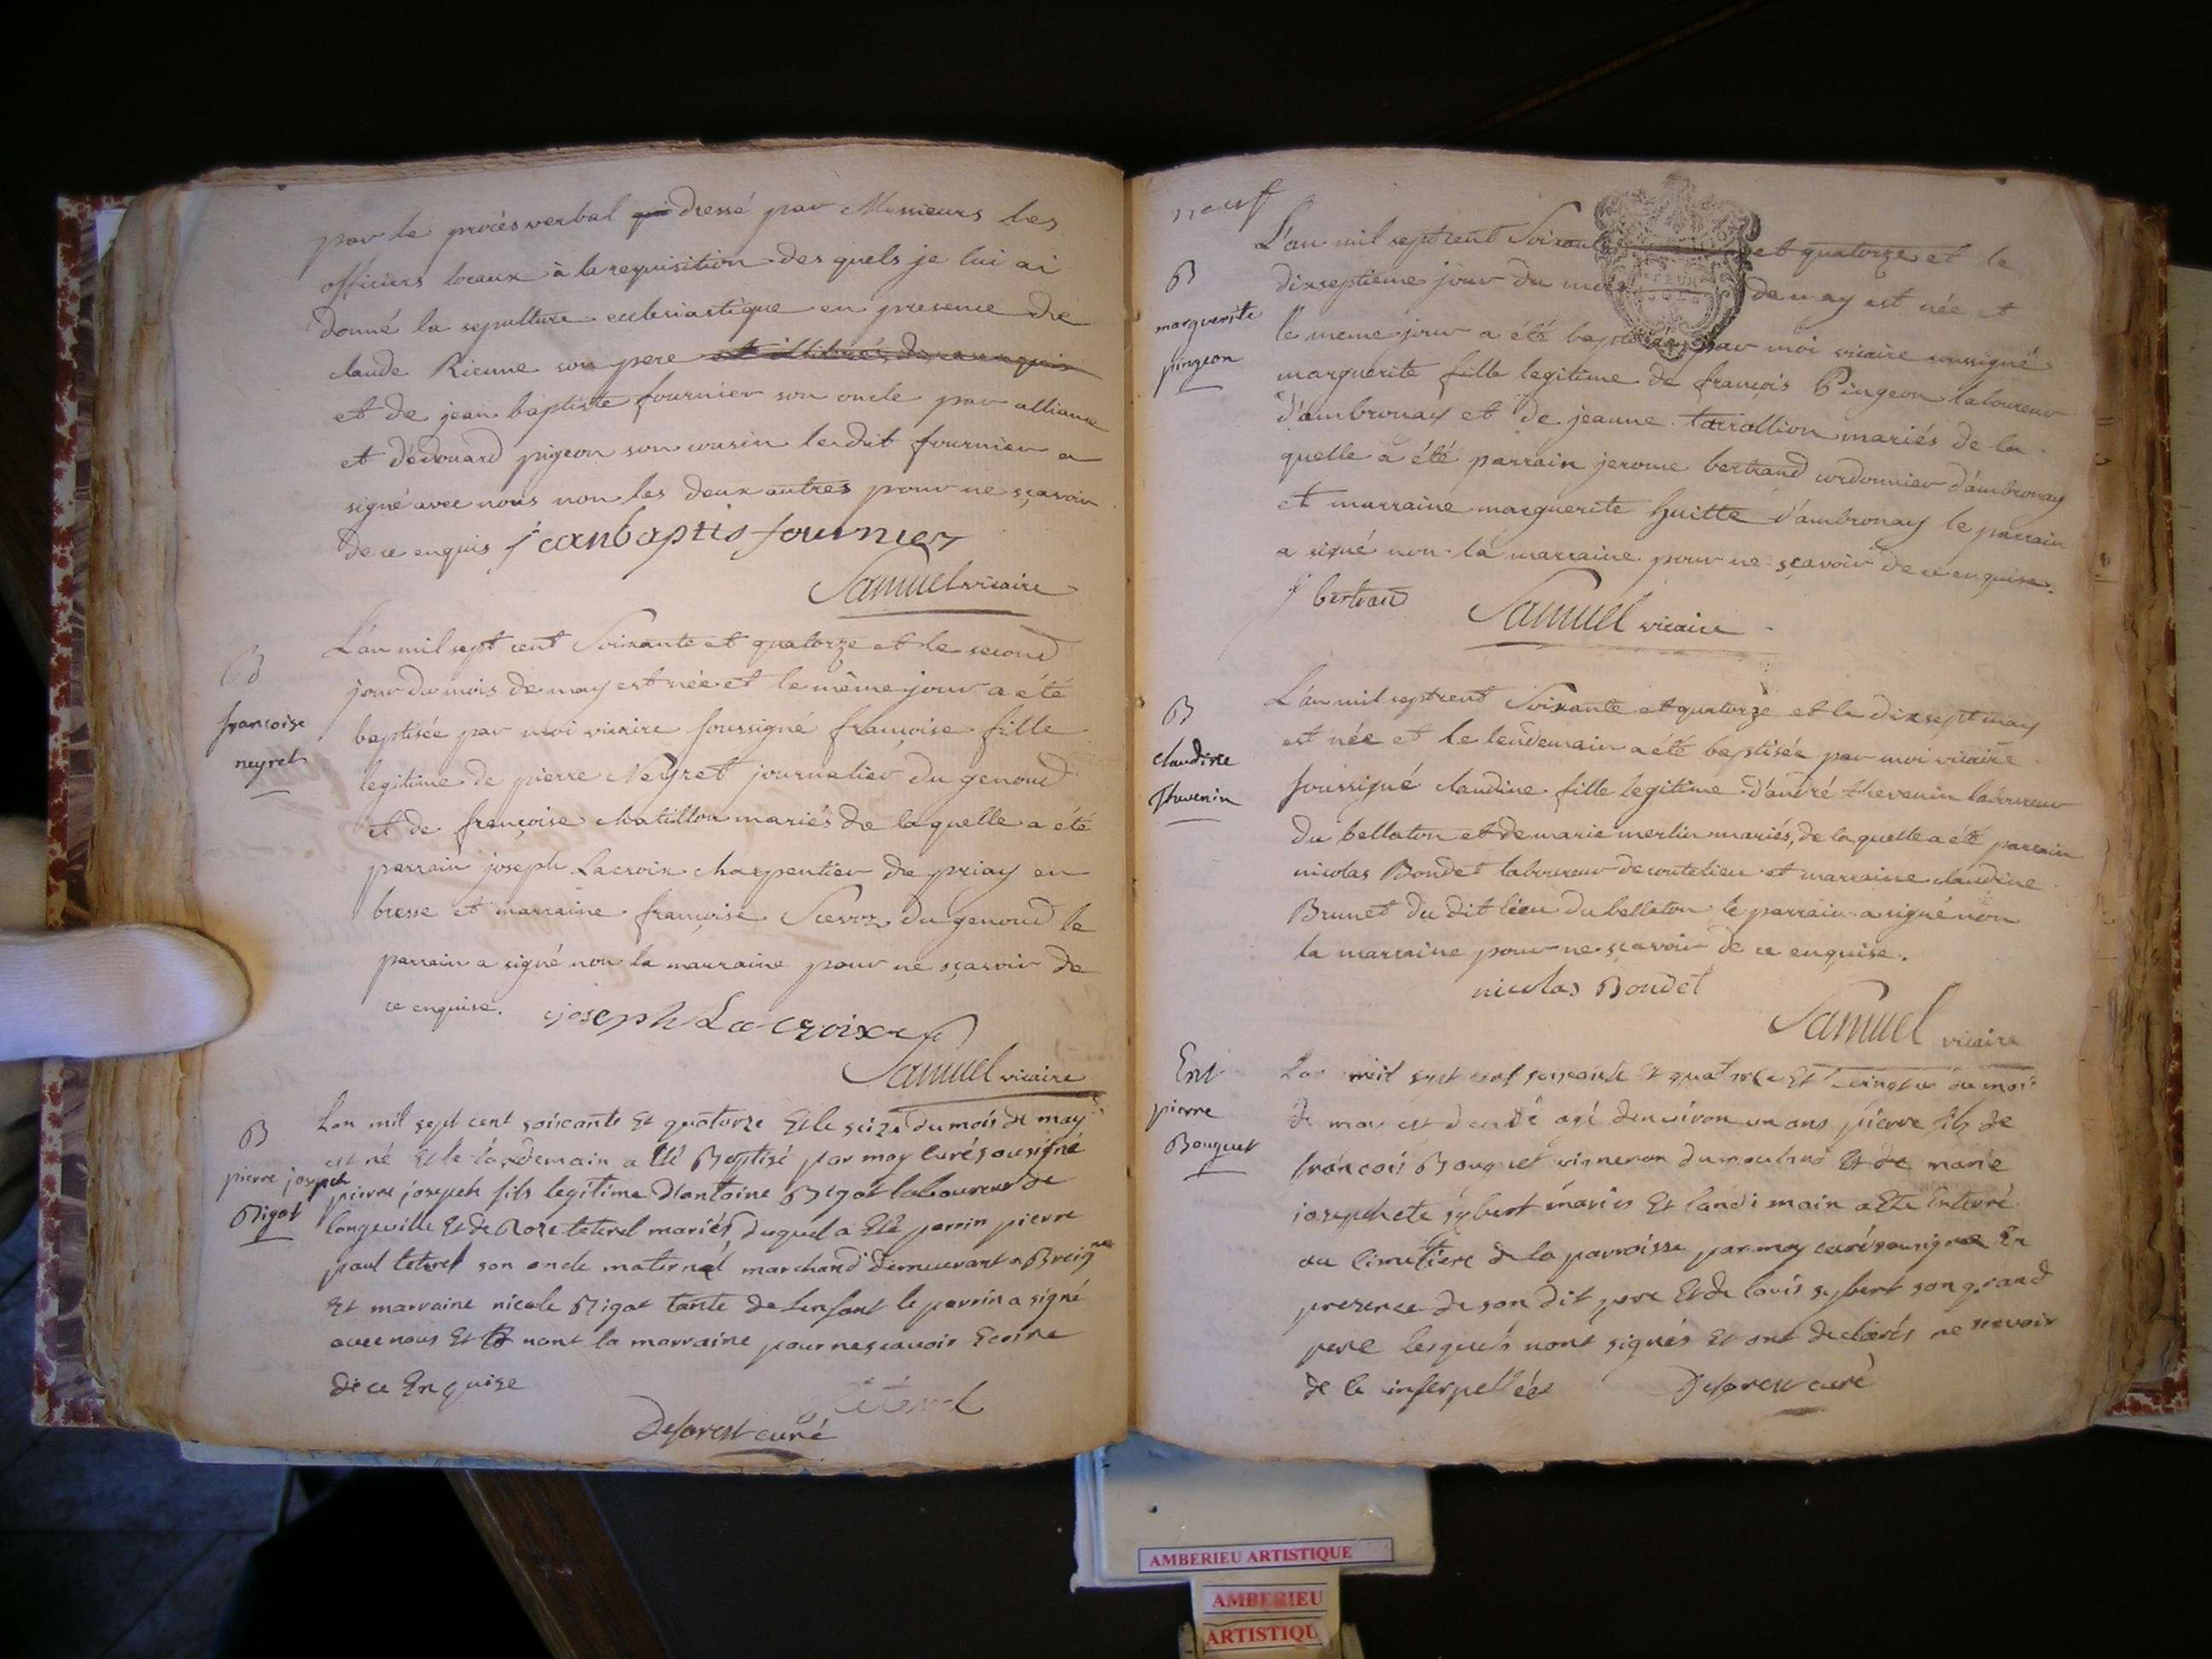 par le procés verbal qui dressé par Messieurs les
officiers locaux à la requisition des quels je lui ai
donné la sepulture ecclesiastique en presence de
claude Rienne son pere
et de jean baptiste fournier son oncle par alliance
et d'édouard pigeon son cousin le dit fournier a
signé avec nous non les deux autres pour ne sçavoir
de ce enquis jeanbaptis fournier
Samuel vicaire
B
francoise
neyret
L'an mil sept cent Soixante et quatorze et le second
jour du mois de may est née et le même jour a été
baptisée par moi vicaire soussigné françoise fille
legitime de pierre Neyret journalier du genoud
et de françoise chatillon mariés de laquelle a été
parrain joseph Lacroix charpentier de priay en
bresse et marraine françoise du genoud le
parrain a signé non la marraine pour ne sçavoir de
ce enquise. joseph Lacroix
Samuel vicaire
B
pierre josepeh
Rigat
Lan mil sept cent soixcante Et quatorze Et le seize du mois de may
est né Et le landemain a Eté Baptisé par moy curé sousigné
pierre josepeh fils legitime d'antoine Rigat laboureur de
longeville Et de Rose teterel mariés, duquel a Eté parrin pierre
paul teterel son oncle maternel marchand demeurant a
Et marraine nicole Rigat tante de Lenfant le parrin a signé
avec nous Et nont la marraine pour ne scavoir Ecrire
de ce Enquise
teterel
Deforest curé
neuf
B
marguerite
pingeon
L'an mil sept cent Soixante et quatorze et le
dixseptieme jour du mois de may est née et
le meme jour a été baptisée par moi vicaire soussigné
marguerite fille legitime de françois Pingeon laboureur
d'ambronay et de jeanne tarrallion mariés de la
quelle a été parrain jerome bertrand cordonnier d'ambronay
et marraine marguerite huitte d'ambronay le parrain
a signé non la marraine pour ne sçavoir de ce enquise.
j bertran Samuel vicaire
B
claudine
Thevenin
L'an mil sept cent Soixante et quatorze et le dix sept may
est née et le lendemain a été baptisée par moi vicaire
soussigné claudine fille legitime d'andré thevenin laboureur
du bellaton et de marie merlin mariés, de la quelle a été parrain
nicolas Bondet laboureur de coutelieu et marraine claudine
Brunet du dit lieu du bellaton le parrain a signé non
la marraine pour ne sçavoir de ce enquise.
nicolas Bondet
Samuel vicaire
Ent
pierre
Bouquet
Lan mil sept cent soixcante Et quatorze Et du mois
de may est decedé agé denviron un ans pierre fils de
francois Bouquet vigneron Et de marie
josepehete sybert mariés Et landimain a Ete Enterré
au cimetiere de la parroisse par moy curé sousigné En
presence de son dit pere Et de louis sybert son grand
pere lesquels nont signés Et ont declarés ne scavoir
de ce interpellées Deforest curé
AMBERIEU ARTISTIQUE
AMBERIEU
ARTISTIQU